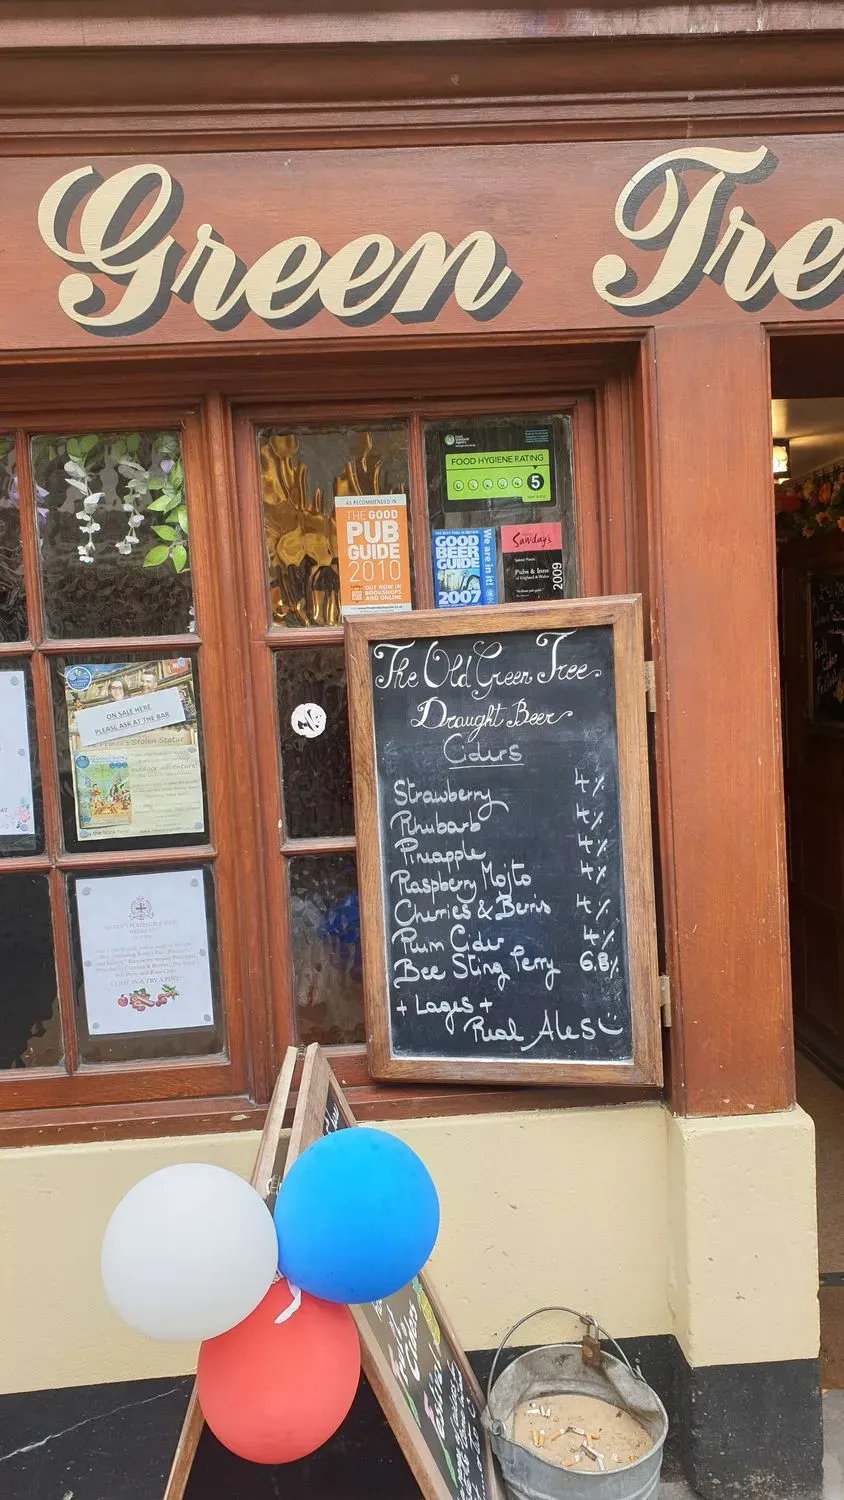 Green Tre
FOOD HYGIENE RATING
5
VERY GOOD
AS RECOMMENDED IN
THE GOOD
PUB
GUIDE
2010
OUT NOW IN
BOOKSHOPS
AND ONLINE
GOOD
BEER
GUIDE
2007
We are in it!
Sawday's
Pubs & Inns
of England & Wales
2009
ON SALE HERE
PLEASE ASK AT THE BAR
Prince's Stolen Statue
outdoor adventure!
The Old Green Tree
Draught Beer
Ciders
Strawberry 4%
Rhubarb 4%
Pineapple 4%
Raspberry Mojto 4%
Cherries & Berris 4%
Plum Cider 4%
Bee Sting Perry 6.8%
+ Lages +
Real Ales
QUEEN'S PLATINUM JUBILEE
WEEKEND
COME IN & TRY A PINT!